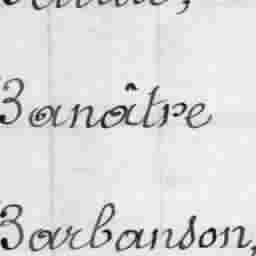 Banâtre
Barbanson,